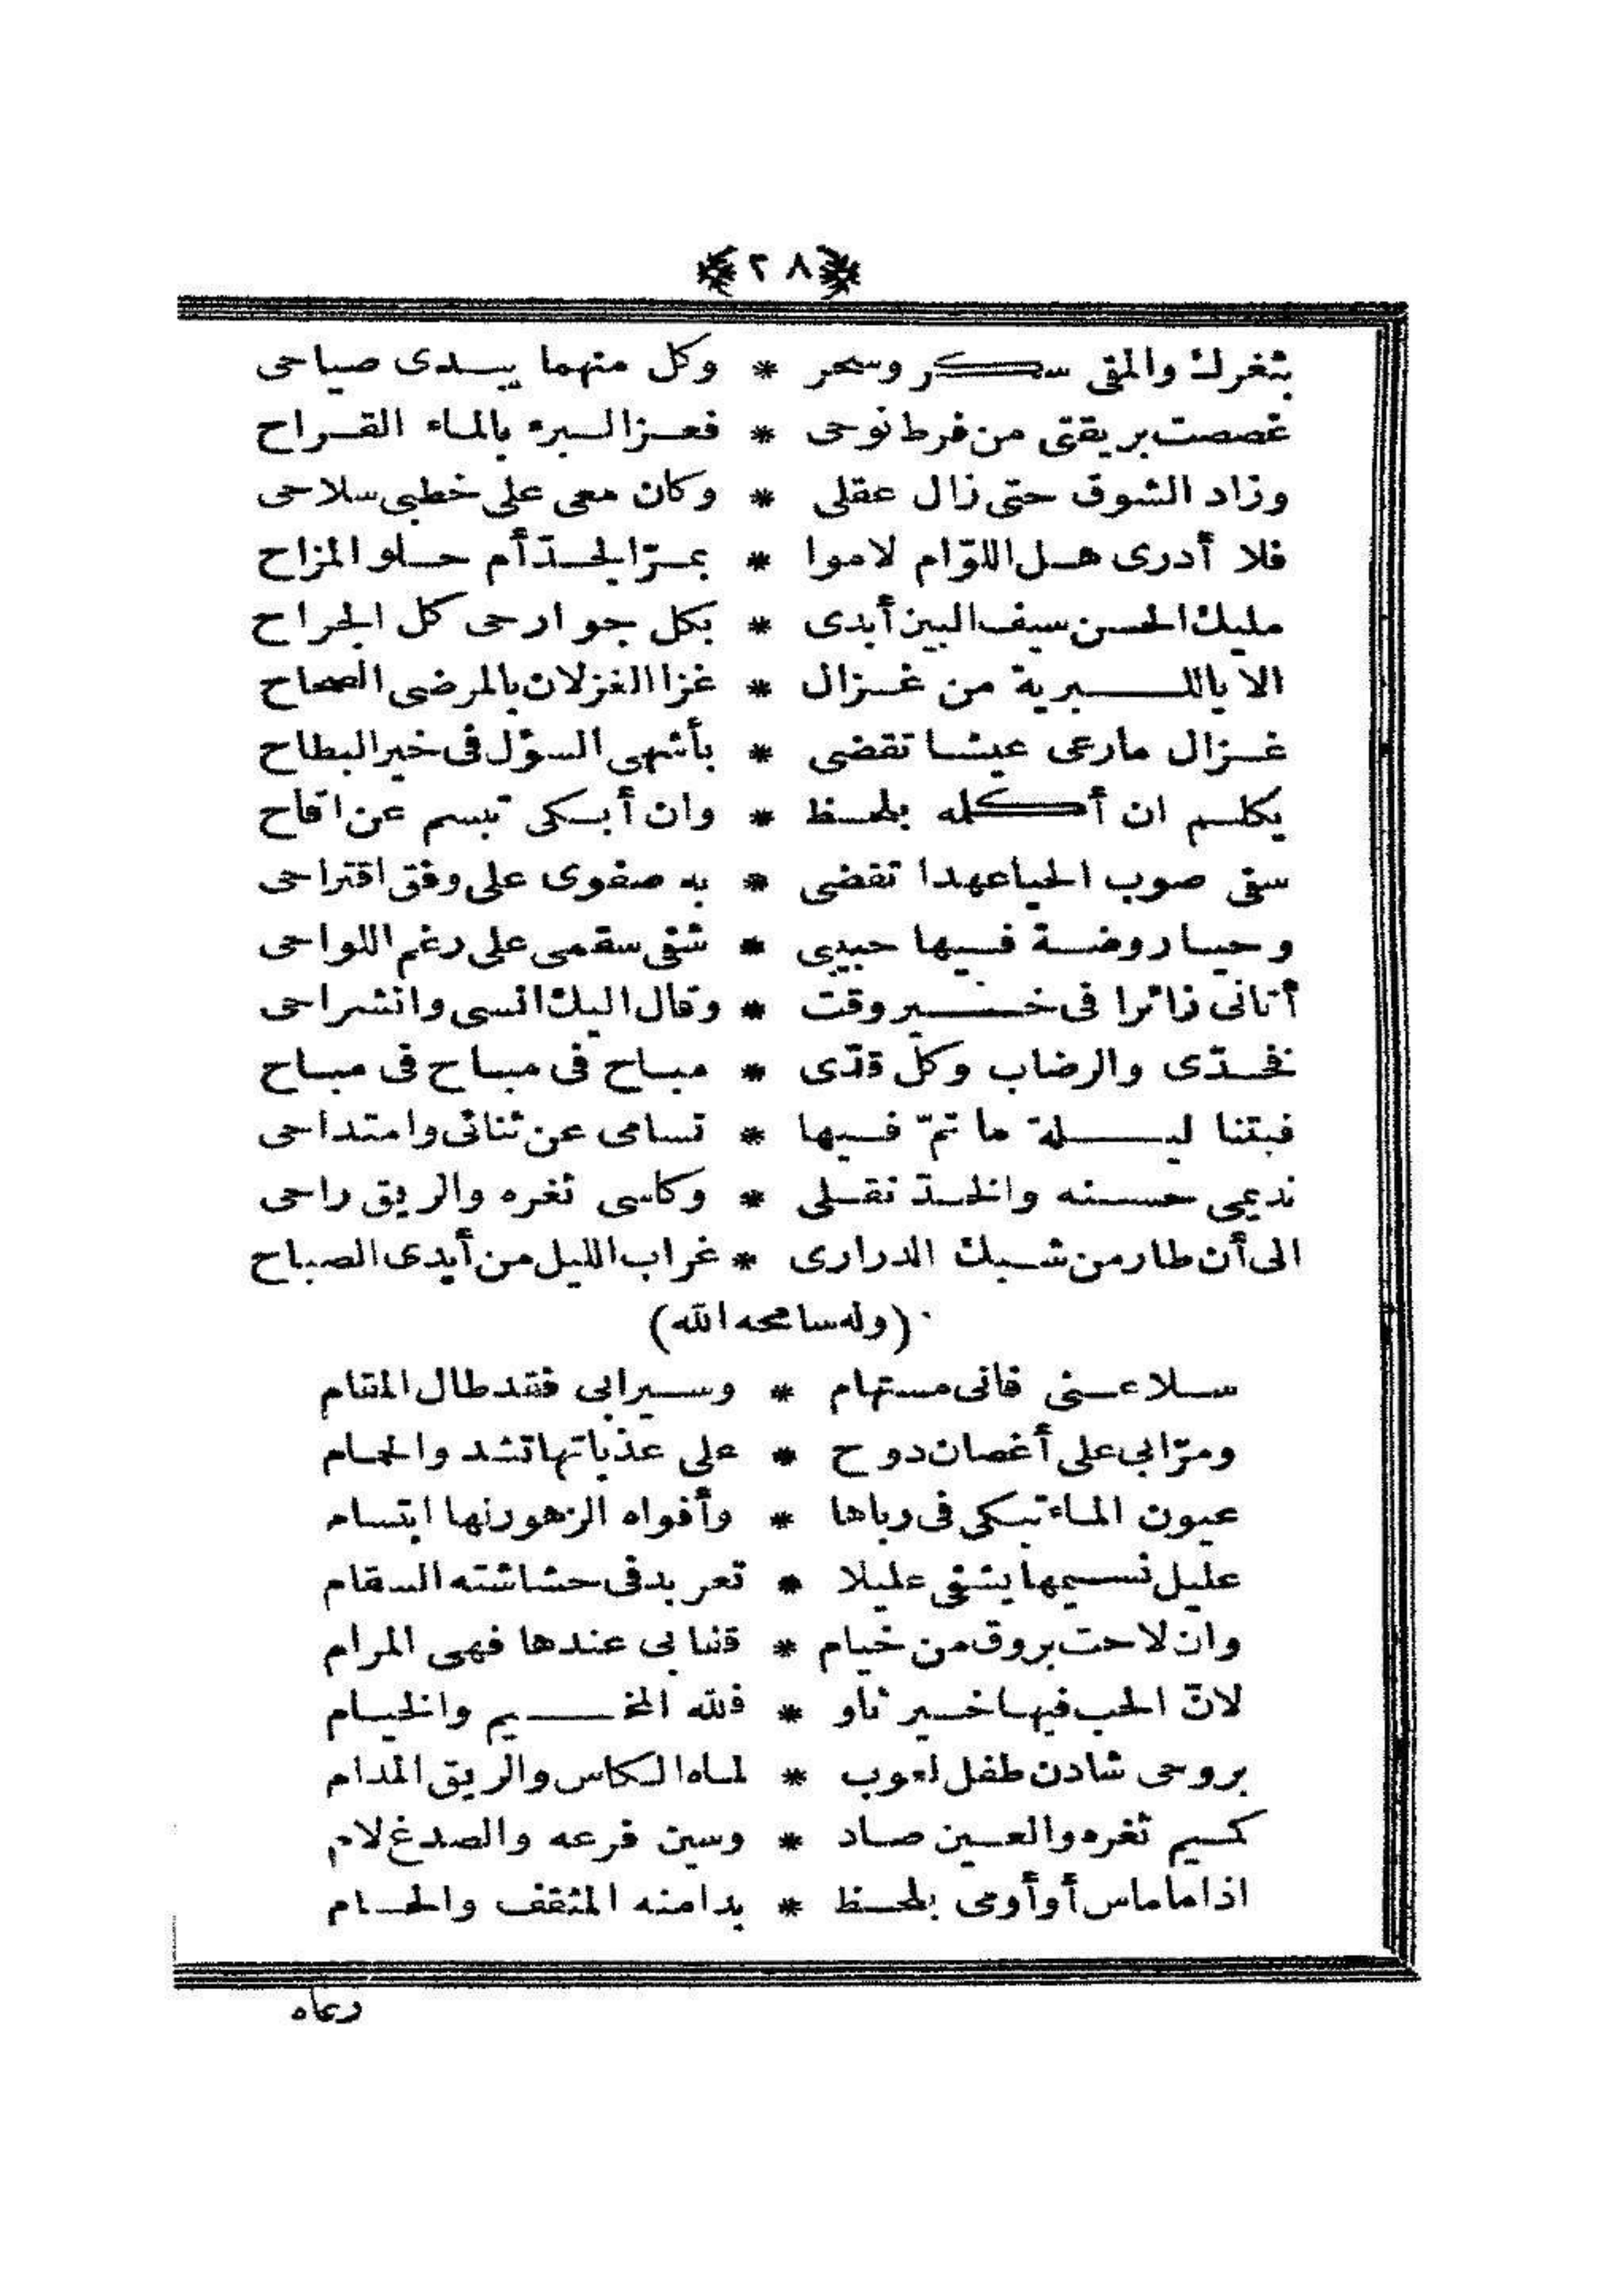 ﴿٢٨﴾
بثغرك والمقى سكر وسحر * وكل منهما يبدى صياحى
غصصت بريقتى من فرط نوحى * فعز البرء بالماء القراح
وزاد الشوق حتى زال عقلى * وكان معى على خطبى سلاحى
فلا أدرى هل اللوّام لاموا * بمرّ الجدّ أم حلو المزاح
مليك الحسن سيف البين أبدى * بكل جوارحى كل الجراح
الا ياللبرية من غزال * غزا الغزلان بالمرضى الصحاح
غزال مارعى عيشا تقضى * بأشهى السؤل فى خير البطاح
يكلم ان أكله بلحظ * وان أبكى تبسم عن اقاح
سقى صوب الحيا عهدا تقضى * به صفوى على وفق اقتراحى
وحيا روضة فيها حبيبى * شفى سقمى على رغم اللواحى
أتانى زائرا فى خير وقت * وقال اليك انسى وانشراحى
فخدّى والرضاب وكل قدّى * مباح فى مباح فى مباح
فبتنا ليلة ما تمّ فيها * تسامى عن ثنائى وامتداحى
نديمى حسنه والخدّ نقلى * وكاسى ثغره والريق راحى
الى أن طار من شبك الدرارى * غراب الليل من أيدى الصباح
(وله سامحه الله)
سلا عنى فانى مستهام * وسيرا بى فقد طال المقام
ومرّا بى على أغصان دوح * على عذباتها تشدو الحمام
عيون الماء تبكى فى رباها * وأفواه الزهور لها ابتسام
عليل نسيمها يشفى عليلا * تعربد فى حشاشته السقام
وان لاحت بروق من خيام * قفا بى عندها فهى المرام
لانّ الحب فيها خير ثاو * فلله المخيم والخيام
بروحى شادن طفل لعوب * لماه الكاس والريق المدام
كميم ثغره والعين صاد * وسين فرعه والصدغ لام
اذا ماماس أو أومى بلحظ * بدا منه المثقف والحسام
رعاه